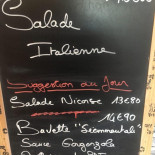 Salade
Italienne
Suggestion du Jour
Salade Nicoise 13€80
14€90
Bavette "Simmental"
Sauce Gorgonzola